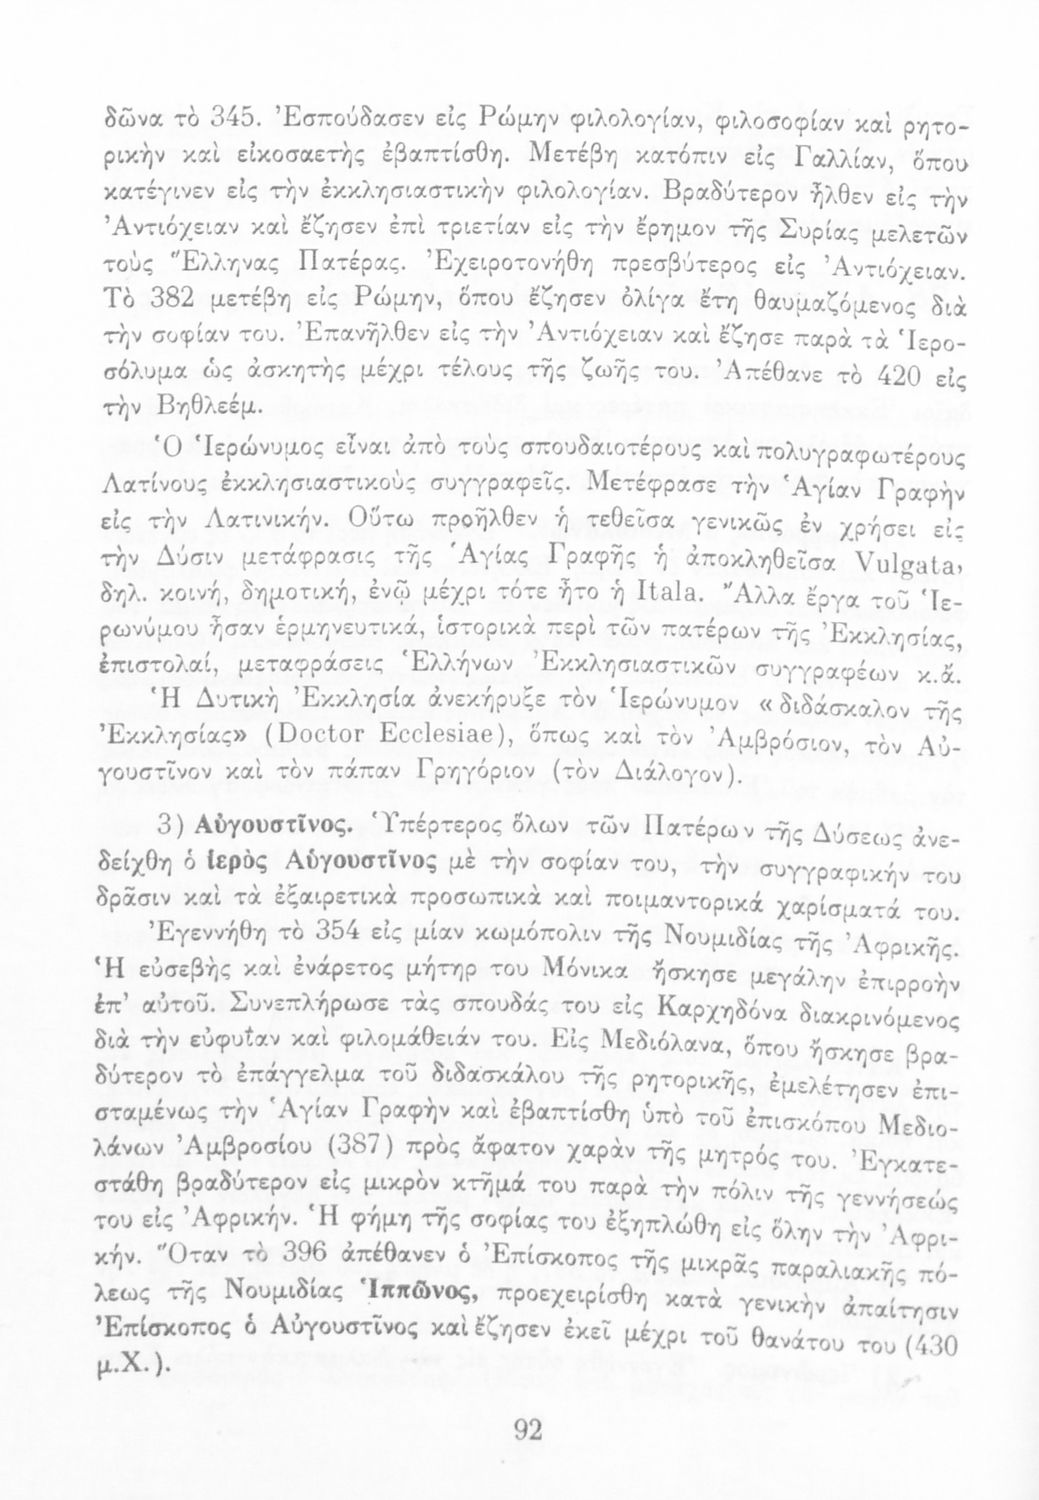 δῶνα τὸ 345. Ἐσπούδασεν εἰς Ρώμην φιλολογίαν, φιλοσοφίαν καὶ ρητο-
ρικὴν καὶ εἰκοσαετὴς ἐβαπτίσθη. Μετέβη κατόπιν εἰς Γαλλίαν, ὅπου
κατέγινεν εἰς τὴν ἐκκλησιαστικὴν φιλολογίαν. Βραδύτερον ἦλθεν εἰς τὴν
Ἀντιόχειαν καὶ ἔζησεν ἐπὶ τριετίαν εἰς τὴν ἔρημον τῆς Συρίας μελετῶν
τοὺς Ἕλληνας Πατέρας. Ἐχειροτονήθη πρεσβύτερος εἰς Ἀντιόχειαν.
Τὸ 382 μετέβη εἰς Ρώμην, ὅπου ἔζησεν ὀλίγα ἔτη θαυμαζόμενος διὰ
τὴν σοφίαν του. Ἐπανῆλθεν εἰς τὴν Ἀντιόχειαν καὶ ἔζησε παρὰ τὰ Ἱερο-
σόλυμα ὡς ἀσκητὴς μέχρι τέλους τῆς ζωῆς του. Ἀπέθανε τὸ 420 εἰς
τὴν Βηθλεέμ.
Ὁ Ἱερώνυμος εἶναι ἀπὸ τοὺς σπουδαιοτέρους καὶ πολυγραφωτέρους
Λατίνους ἐκκλησιαστικοὺς συγγραφεῖς. Μετέφρασε τὴν Ἁγίαν Γραφὴν
εἰς τὴν Λατινικήν. Οὕτω προῆλθεν ἡ τεθεῖσα γενικῶς ἐν χρήσει εἰς
τὴν Δύσιν μετάφρασις τῆς Ἁγίας Γραφῆς ἡ ἀποκληθεῖσα Vulgata,
δηλ. κοινή, δημοτική, ἐνῷ μέχρι τότε ἦτο ἡ Itala. Ἄλλα ἔργα τοῦ Ἱε-
ρωνύμου ἦσαν ἑρμηνευτικά, ἱστορικὰ περὶ τῶν πατέρων τῆς Ἐκκλησίας,
ἐπιστολαί, μεταφράσεις Ἑλλήνων Ἐκκλησιαστικῶν συγγραφέων κ.ἄ.
Ἡ Δυτικὴ Ἐκκλησία ἀνεκήρυξε τὸν Ἱερώνυμον «διδάσκαλον τῆς
Ἐκκλησίας» (Doctor Ecclesiae), ὅπως καὶ τὸν Ἀμβρόσιον, τὸν Αὐ-
γουστῖνον καὶ τὸν πάπαν Γρηγόριον (τὸν Διάλογον).
3) Αὐγουστῖνος. Ὑπέρτερος ὅλων τῶν Πατέρων τῆς Δύσεως ἀνε-
δείχθη ὁ ἱερὸς Αὐγουστῖνος μὲ τὴν σοφίαν του, τὴν συγγραφικήν του
δρᾶσιν καὶ τὰ ἐξαιρετικὰ προσωπικὰ καὶ ποιμαντορικά χαρίσματά του.
Ἐγεννήθη τὸ 354 εἰς μίαν κωμόπολιν τῆς Νουμιδίας τῆς Ἀφρικῆς.
Ἡ εὐσεβὴς καὶ ἐνάρετος μήτηρ του Μόνικα ἤσκησε μεγάλην ἐπιρροὴν
ἐπ' αὐτοῦ. Συνεπλήρωσε τὰς σπουδάς του εἰς Καρχηδόνα διακρινόμενος
διὰ τὴν εὐφυΐαν καὶ φιλομάθειάν του. Εἰς Μεδιόλανα, ὅπου ἤσκησε βρα-
δύτερον τὸ ἐπάγγελμα τοῦ διδασκάλου τῆς ρητορικῆς, ἐμελέτησεν ἐπι-
σταμένως τὴν Ἁγίαν Γραφὴν καὶ ἐβαπτίσθη ὑπὸ τοῦ ἐπισκόπου Μεδιο-
λάνων Ἀμβροσίου (387) πρὸς ἄφατον χαρὰν τῆς μητρός του. Ἐγκατε-
στάθη βραδύτερον εἰς μικρὸν κτῆμά του παρὰ τὴν πόλιν τῆς γεννήσεώς
του εἰς Ἀφρικήν. Ἡ φήμη τῆς σοφίας του ἐξηπλώθη εἰς ὅλην τὴν Ἀφρι-
κήν. Ὅταν τὸ 396 ἀπέθανεν ὁ Ἐπίσκοπος τῆς μικρᾶς παραλιακῆς πό-
λεως τῆς Νουμιδίας Ἱππῶνος, προεχειρίσθη κατὰ γενικὴν ἀπαίτησιν
Ἐπίσκοπος ὁ Αὐγουστῖνος καὶ ἔζησεν ἐκεῖ μέχρι τοῦ θανάτου του (430
μ.Χ.).
92